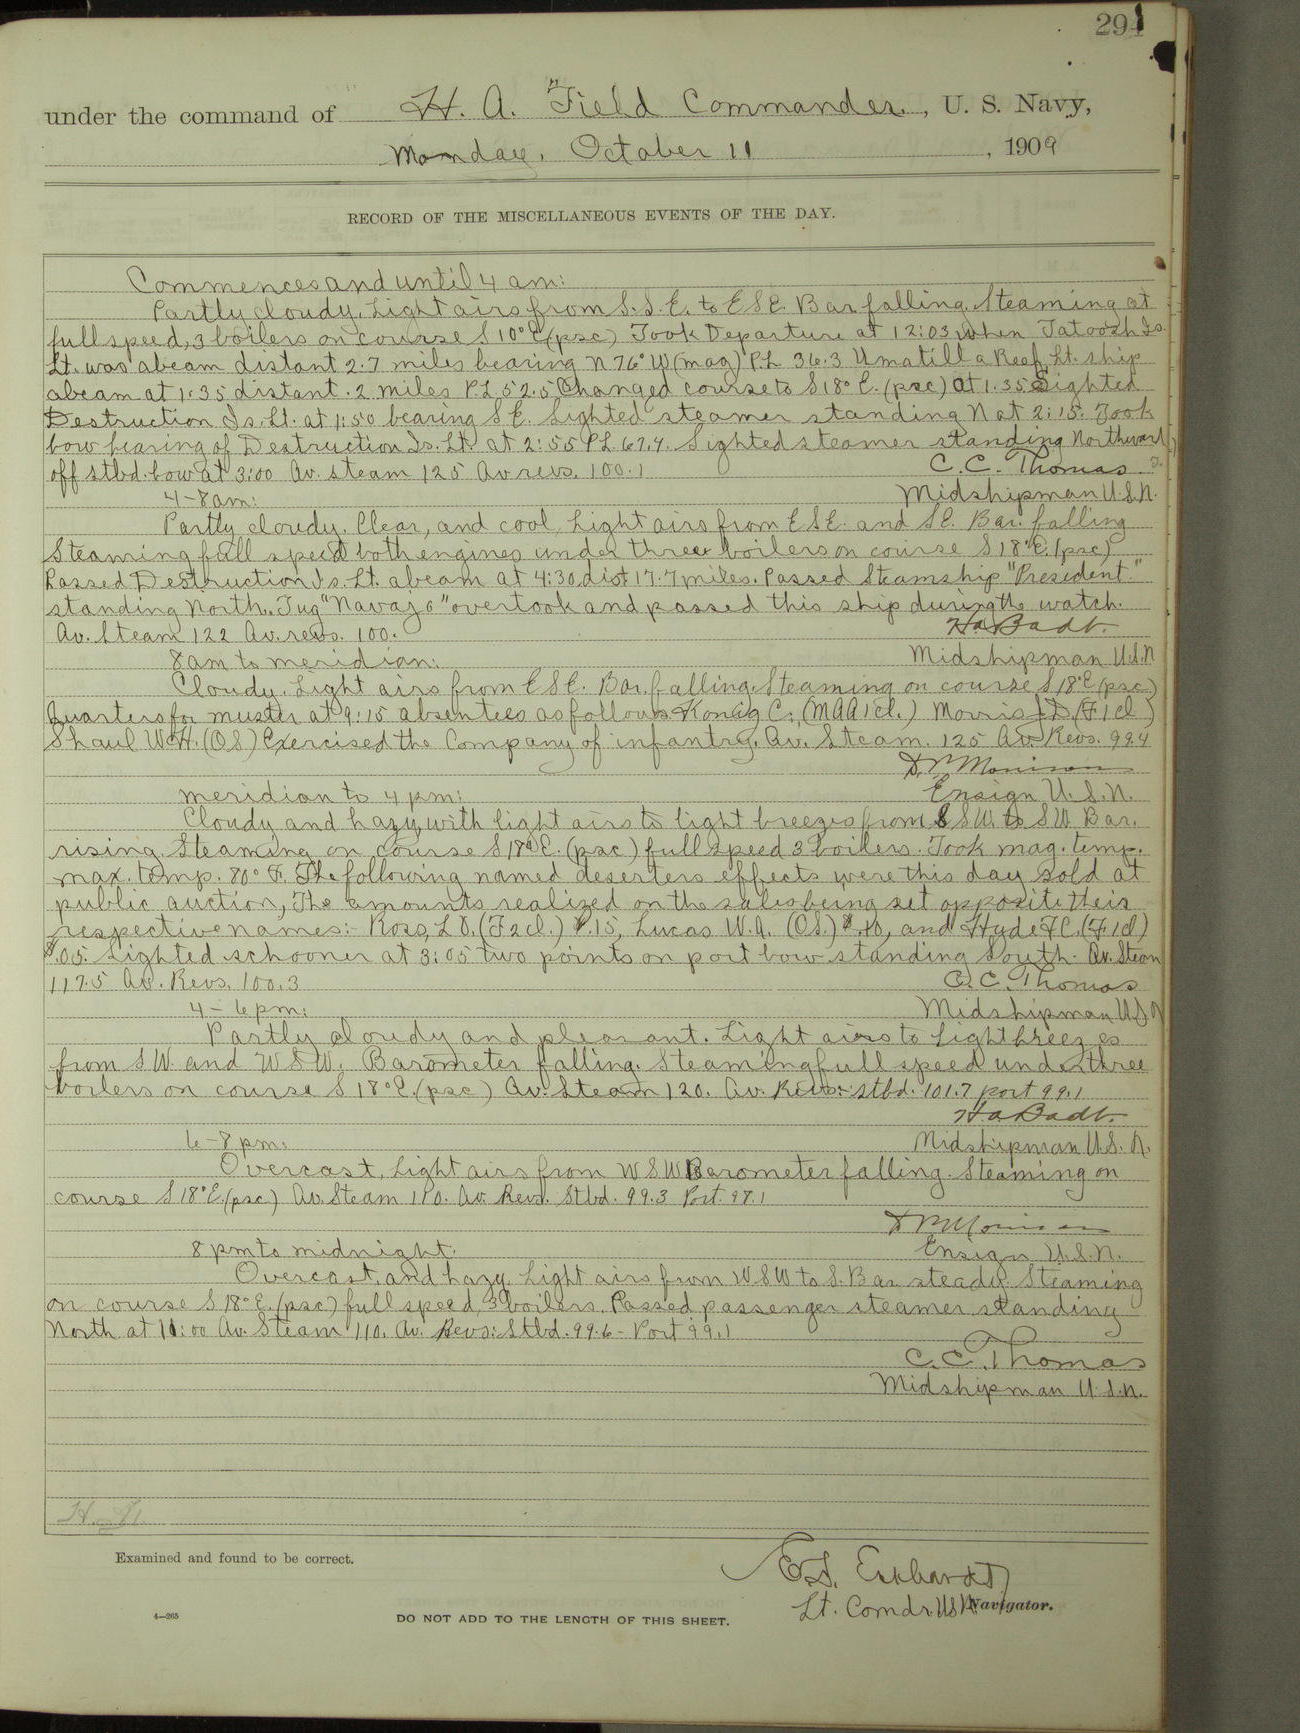 294
under the command of H. A. Field Commander, U. S. Navy,
Monday, October 11, 1909
RECORD OF THE MISCELLANEOUS EVENTS OF THE DAY.
Commences and until 4 am:
Partly cloudy. Light airs from S.S.E. to ESE. Bar falling. Steaming at
full speed, 3 boilers on course S 10° E (psc) Took Departure at 12:03 when Tatoosh Is.
Lt. was abeam distant 2.7 miles bearing N 76° W (mag) P.L 36.3 Umatilla Reef Lt. ship
abeam at 1:35 distant .2 miles P.L 52.5 Changed course to S 18° E. (psc) at 1.35 Sighted
Destruction Is. Lt. at 1:50 bearing SE. Sighted steamer standing N at 2:15. Took
bow bearing of Destruction Is. Lt. at 2:55 PL 67.4. Sighted steamer standing Northward
off stbd. bow at 3:00 Av. steam 125 Av revs. 100.1
C. C. Thomas
4-8 am:
Midshipman U.S.N.
Partly cloudy. Clear, and cool. Light airs from ESE. and SE. Bar. falling
Steaming full speed both engines under three boilers on course S 18° E. (psc)
Passed Destruction Is. Lt. abeam at 4:30 dist 17.7 miles. Passed Steamship "President"
standing North. Tug "Navajo" overtook and passed this ship during the watch.
Av. Steam 122 Av. revs. 100.
Ha Badt.
8 am to meridian:
Midshipman U.S.N
Cloudy. Light airs from ESE. Bar. falling. Steaming on course S 18° E (psc)
Quarters for muster at 9:15 absentees as follows Konig C. (MAA 1 cl.) Morris J.D. (F 1 cl)
Shaul W.H. (OS) Exercised the Company of infantry. Av. Steam. 125 Av. Revs. 99.4
Morrison
meridian to 4 pm:
Ensign U.S.N.
Cloudy and hazy with light airs to light breezes from SSW. to SW. Bar.
rising. Steaming on course S 18° E. (psc) full speed 3 boilers. Took mag. temp.
max. temp. 80° F. The following named deserters effects were this day sold at
public auction, The amounts realized on the sales being set opposite their
respective names:- Ross, L.D. (F 2 cl.) $.15, Lucas W.A. (OS.) $.10, and Hyde F.C. (F. 1 cl)
$.05. Sighted schooner at 3:05 two points on port bow standing South. Av. Steam
117.5 Av. Revs. 100.3
C. C. Thomas
4-6 pm:
Midshipman U.S.N
Partly cloudy and pleasant. Light airs to light breezes
from SW. and WSW. Barometer falling. Steaming full speed under three
boilers on course S 18° E. (psc) Av. Steam 120. Av. Revs: stbd. 101.7 port 99.1
Ha Badt.
6-8 pm:
Midshipman U.S. N.
Overcast. Light airs from WSW. Barometer falling. Steaming on
course S 18° E. (psc) Av. Steam 110. Av. Revs. Stbd. 99.3 Port. 97.1
Morrison
8 pm to midnight.
Ensign U.S.N.
Overcast, and hazy. Light airs from WSW to S. Bar steady. Steaming
on course S 18° E. (psc) full speed, 3 boilers. Passed passenger steamer standing
North at 11:00 Av. Steam 110. Av. Revs: Stbd. 99.6 - Port 99.1
C. C. Thomas
Midshipman U.S.N.
Examined and found to be correct.
E.S. Eckhardt
Lt. Comdr. U.S.N. Navigator.
4—265
DO NOT ADD TO THE LENGTH OF THIS SHEET.